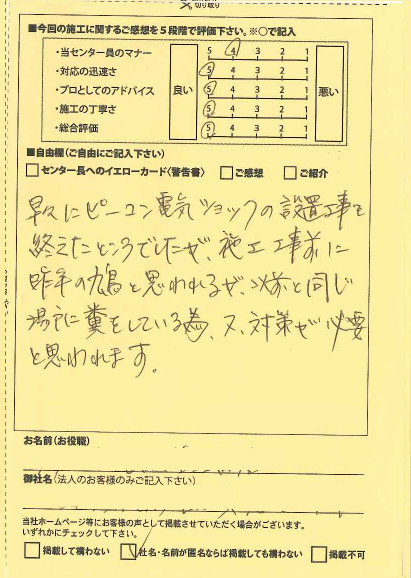 切り取り
■今回の施工に関するご感想を5段階で評価下さい。※○で記入
・当センター員のマナー 5 4 3 2 1
・対応の迅速さ 5 4 3 2 1
・プロとしてのアドバイス 良い 5 4 3 2 1 悪い
・施工の丁寧さ 5 4 3 2 1
・総合評価 5 4 3 2 1
■自由欄(ご自由にご記入下さい)
□センター長へのイエローカード(警告書) □ご感想 □ご紹介
早々にピーコン電気ショックの設置工事を
終えたところでしたが、施工工事前に
昨年の鳩と思われるが、以前と同じ
場所に糞をしている為、又、対策が必要
と思われます。
お名前(お役職)
御社名(法人のお客様のみご記入下さい)
当社ホームページ等にお客様の声として掲載させていただく場合がございます。
いずれかにチェックして下さい。
□掲載して構わない □社名・名前が匿名ならば掲載しても構わない □掲載不可